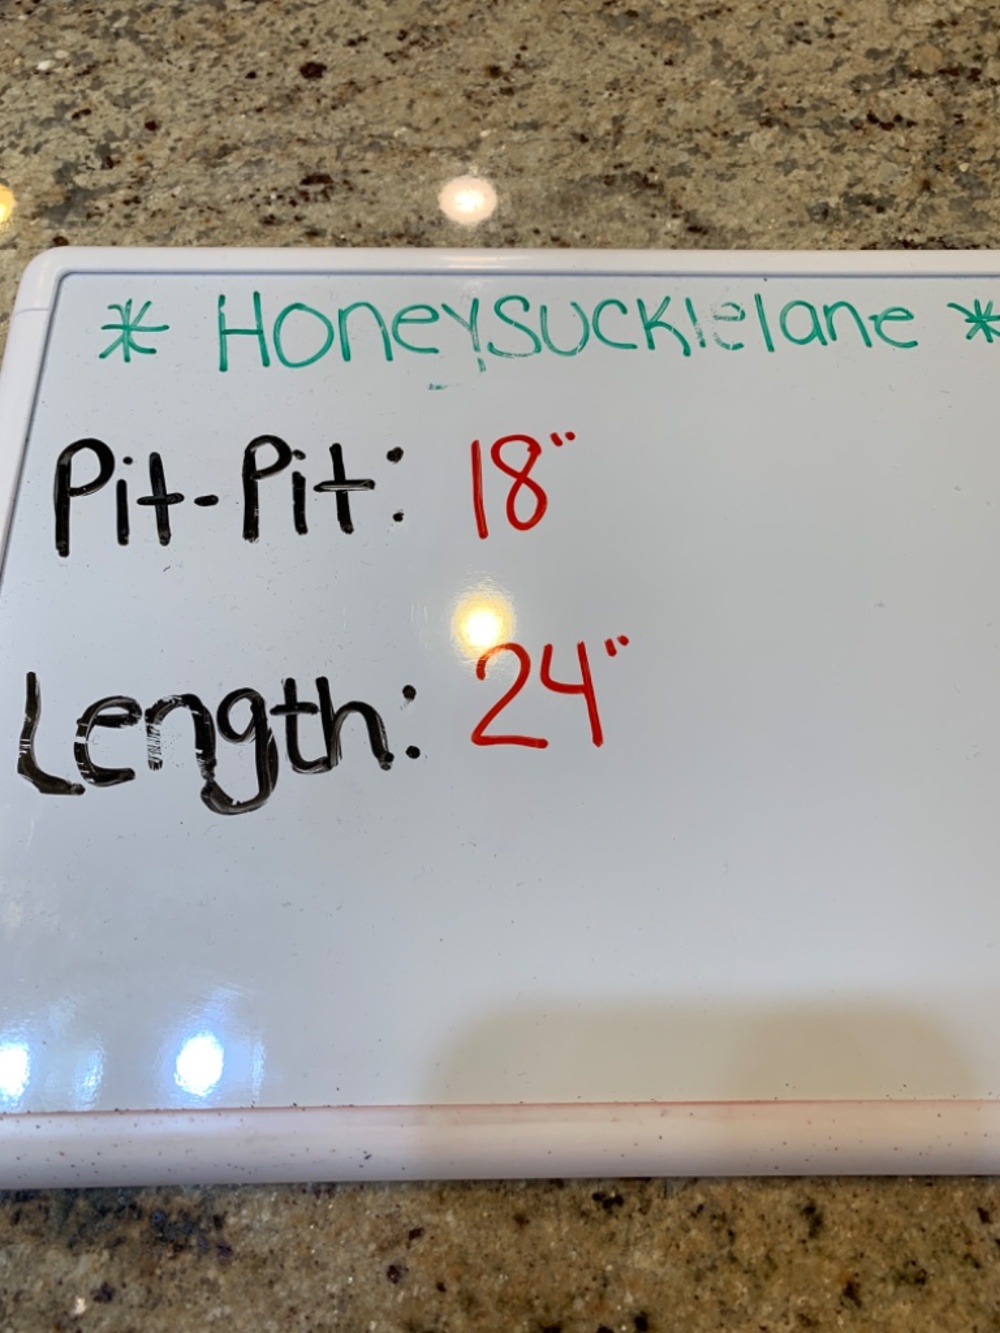 * Honeysucklelane *
Pit-Pit: 18"
Length: 24"